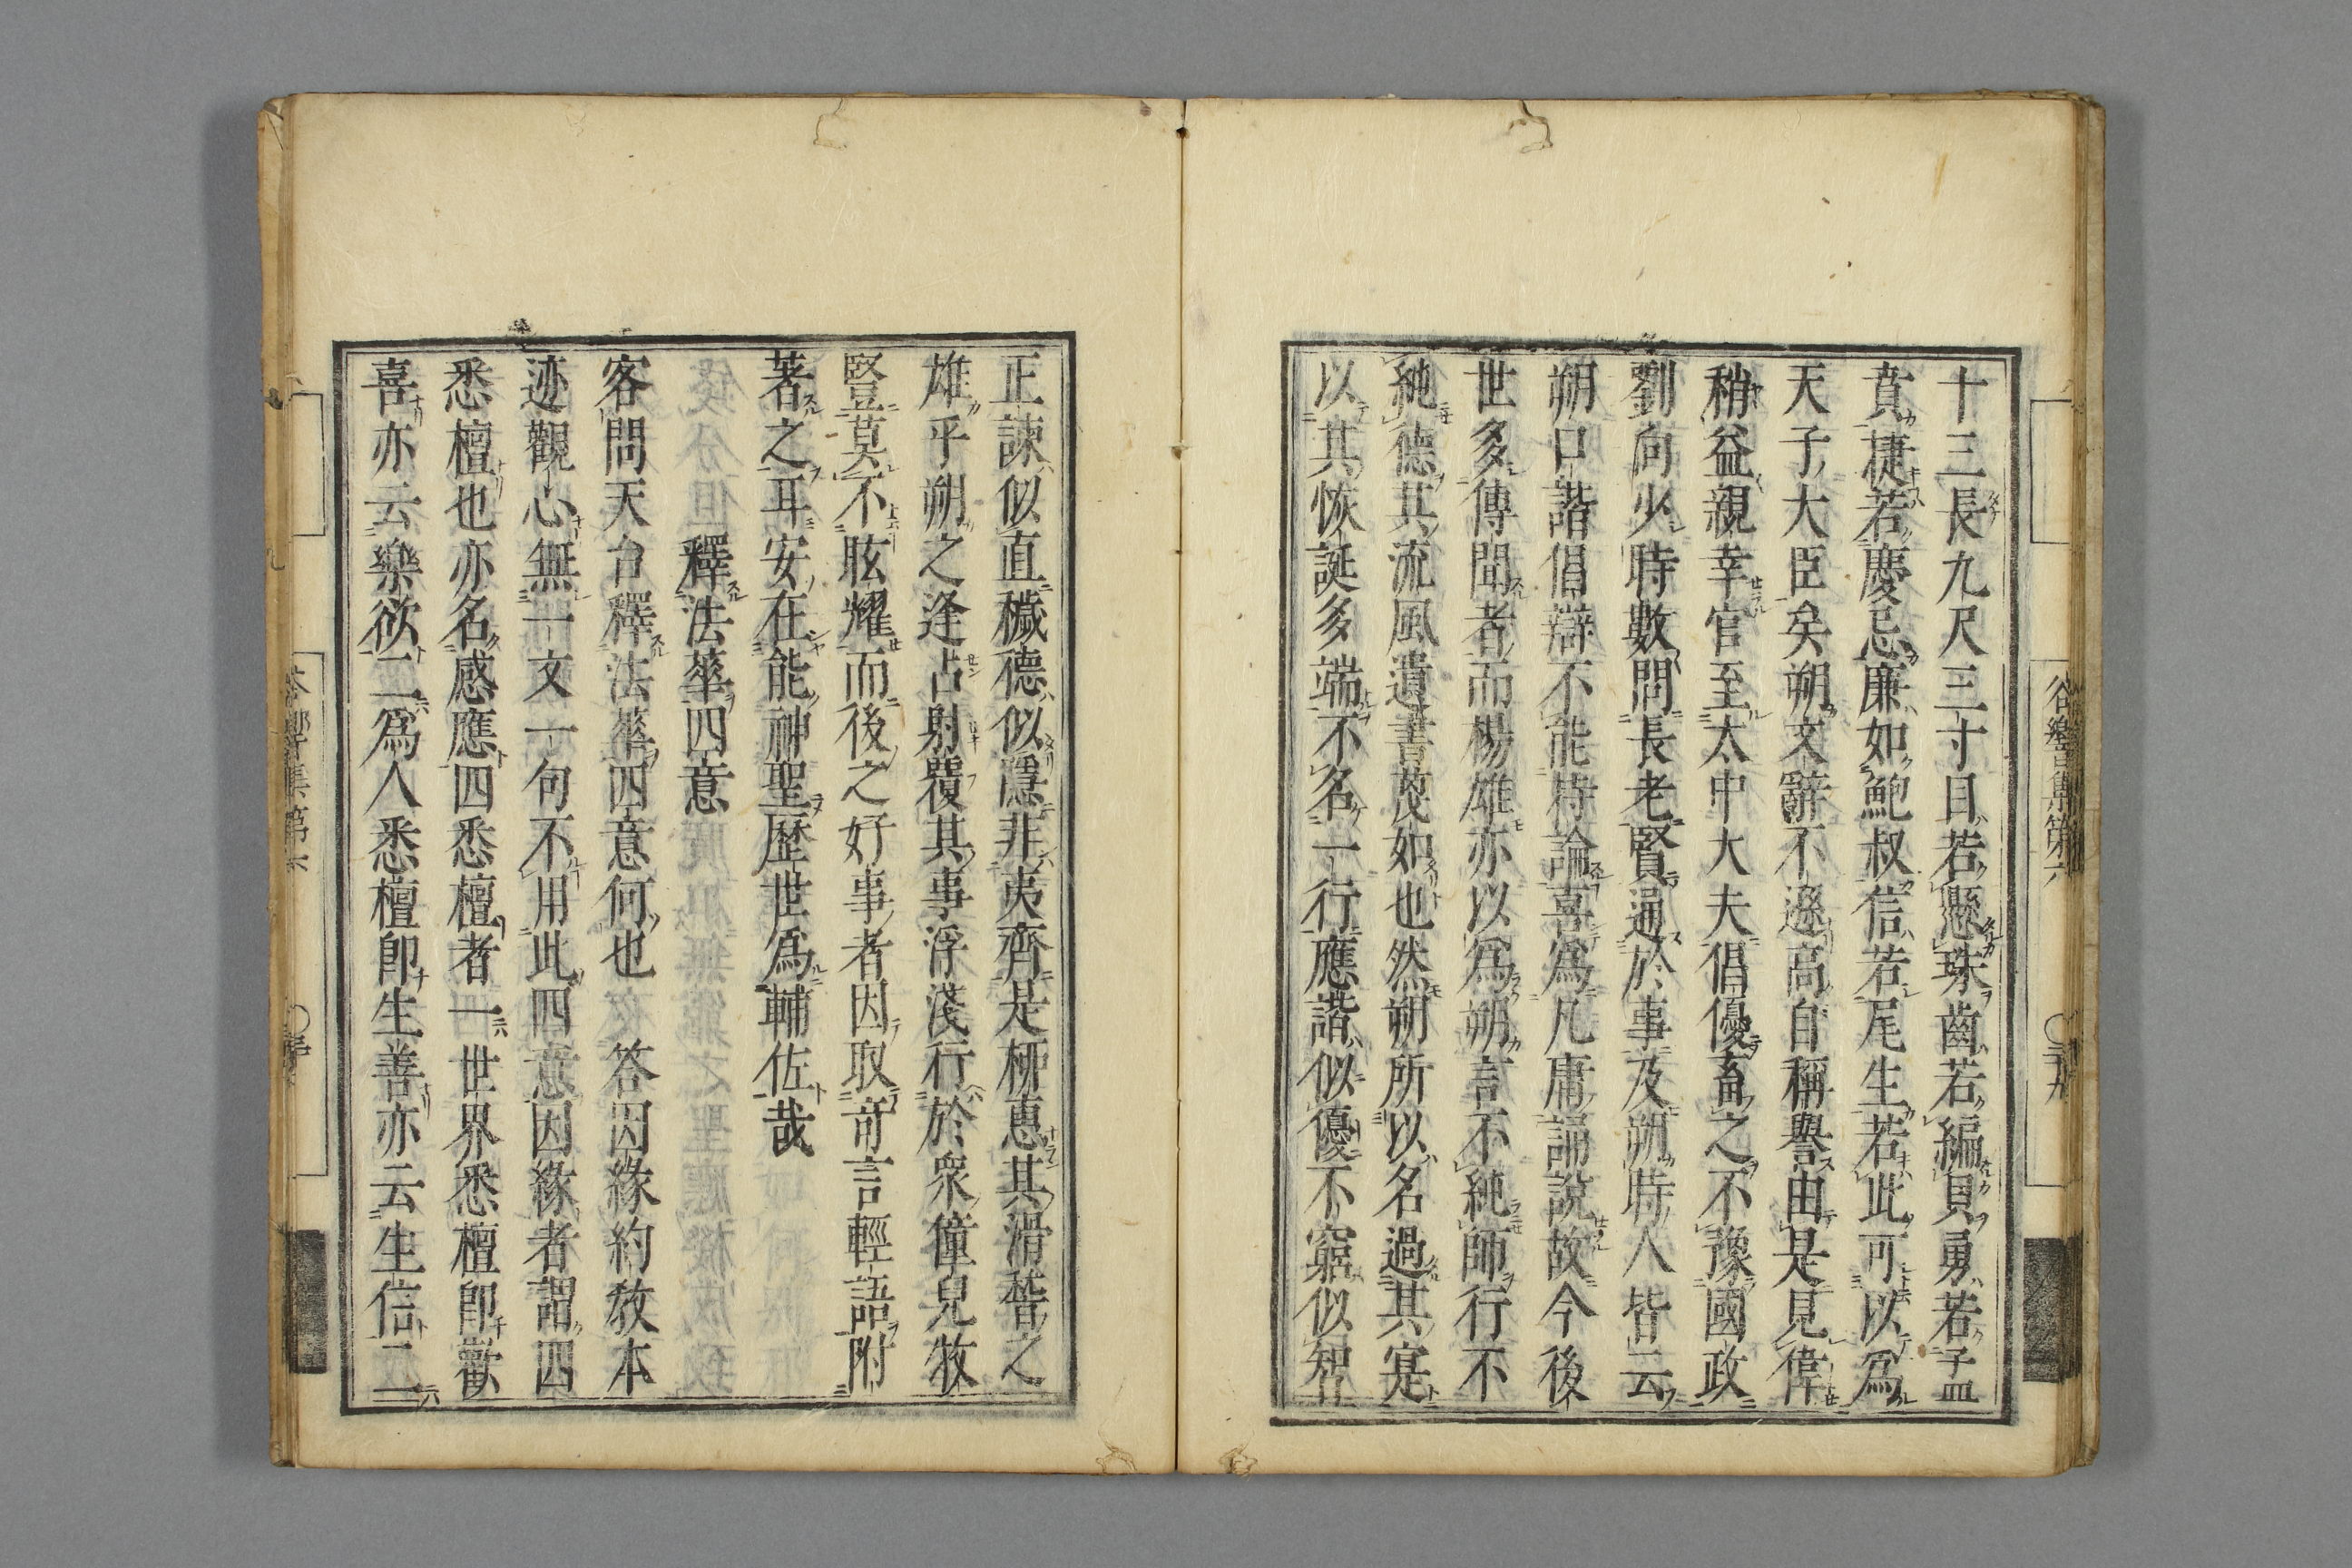 十三長九尺三寸目若懸珠齒若編貝勇若孟
賁捷若慶忌廉如鮑叔信若尾生若此可以爲
天子大臣矣朔文辭不遜高自稱譽由是見偉
稍益親幸官至太中大夫倡優畜之不豫國政
劉向少時數問長老賢通於事及朔時人皆云
朔口諧倡辯不能持論喜爲凡庸誦說故今後
世多傳聞者而楊雄亦以爲朔言不純師行不
純德其流風遺書蔑如也然朔所以名過其寔
以其恢誕多端不名一行應諧似優不窮似智
正諫似直穢德似隱非夷齊是柳惠其滑稽之
雄乎朔之逢占射覆其事浮淺行於衆僮兒牧
豎莫不眩耀而後之好事者因取奇言輕語附
著之耳安在能神聖歷世爲輔佐哉
釋法華四意
客問天台釋法華四意何也　答因緣約教本
迹觀心無一文一句不用此四意因緣者謂四
悉檀也亦名感應四悉檀者一世界悉檀卽歡
喜亦云樂欲二爲人悉檀卽生善亦云生信二
谷響集第六　〇二十九
谷響集第六